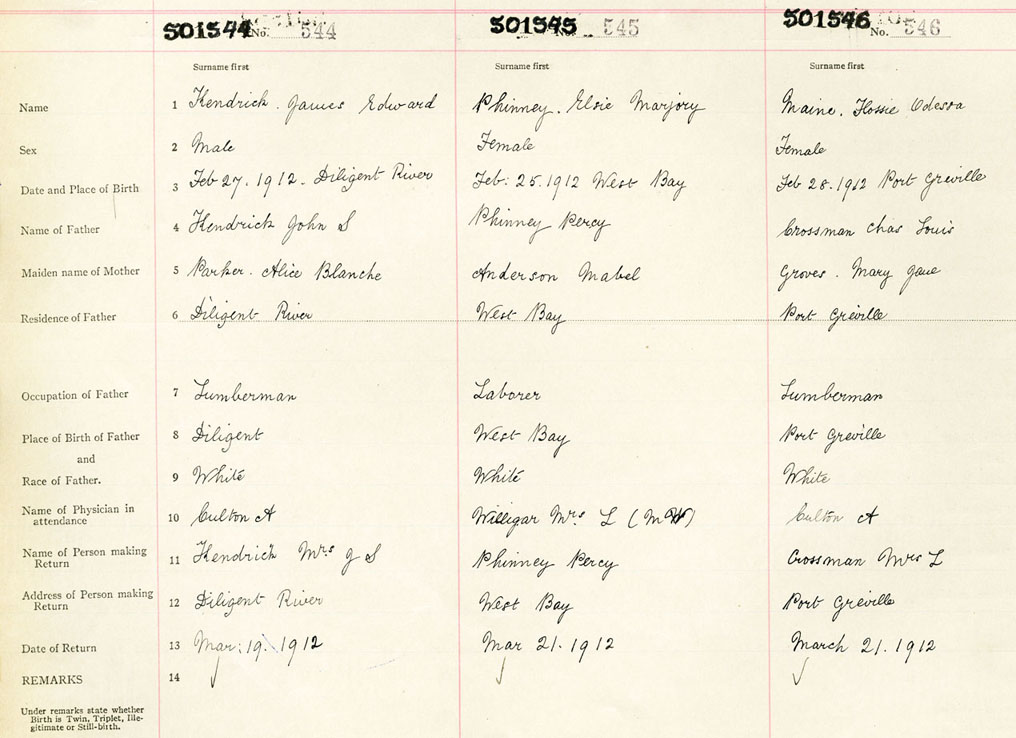 501544 No. 544 501545 No. 545 501546 No. 546
Surname first Surname first Surname first
Name 1 Kendrick. James Edward Phinney. Elsie Marjory Maine. Flossie Odessa
Sex 2 Male Female Female
Date and Place of Birth 3 Feb 27. 1912. Diligent River Feb. 25. 1912 West Bay Feb 28. 1912 Port Greville
Name of Father 4 Kendrick John S Phinney Percy Crossman Chas Louis
Maiden name of Mother 5 Parker. Alice Blanche Anderson Mabel Groves. Mary Jane
Residence of Father 6 Diligent River West Bay Port Greville
Occupation of Father 7 Lumberman Laborer Lumberman
Place of Birth of Father 8 Diligent West Bay Port Greville
and
Race of Father. 9 White White White
Name of Physician in
attendance 10 Culton A Willigar Mrs L (MW) Culton A
Name of Person making
Return 11 Kendrick Mrs J S Phinney Percy Crossman Mrs L
Address of Person making
Return 12 Diligent River West Bay Port Greville
Date of Return 13 Mar. 19. 1912 Mar 21. 1912 March 21. 1912
REMARKS 14
Under remarks state whether
Birth is Twin, Triplet, Ille-
gitimate or Still-birth.